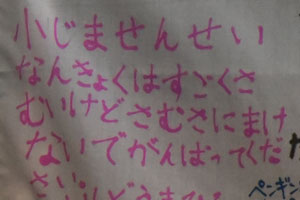 小じませんせい
なんきょくはすごくさ
むいけどさむさにまけ
ないでがんばってくだ
さい。
ペンギン